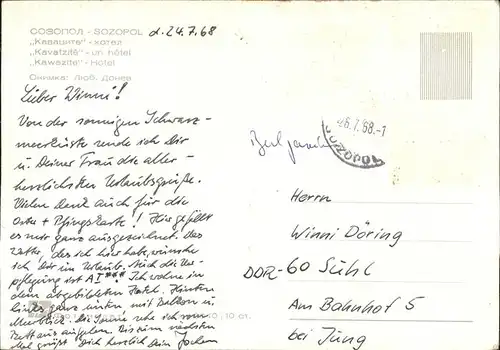 СОЗОПОЛ - SOZOPOL
„Каваците" - хотел
„Kavatzité" - un hôtel
„Kawazite" - Hotel
Снимка: Люб. Донев
d. 24.7.68
Lieber Winni!
Von der sonnigen Schwarz-
meerküste sende ich Dir
u. Deiner Frau die aller-
herzlichsten Urlaubsgrüße.
Vielen Dank auch für die
Oster + Pfingstkarte! Hier gefällt
es mir ganz ausgezeichnet. Das
Wetter, das ich hier habe, wünsche
ich Dir im Urlaub. Auch die Ver-
pflegung ist A I****. Ich wohne in
dem abgebildeten Hotel. Hinten
links ganz unten mit Balkon u.
Meerblick. Die Sonne sehe ich vom
Bett aus aufgehen. Bis zum nächsten
Mal grüßt Dich herzlich Dein Jochen
26.7.68.-1
SOZOPOL
Herrn
Winni Döring
DDR-60 Suhl
Am Bahnhof 5
bei Jung